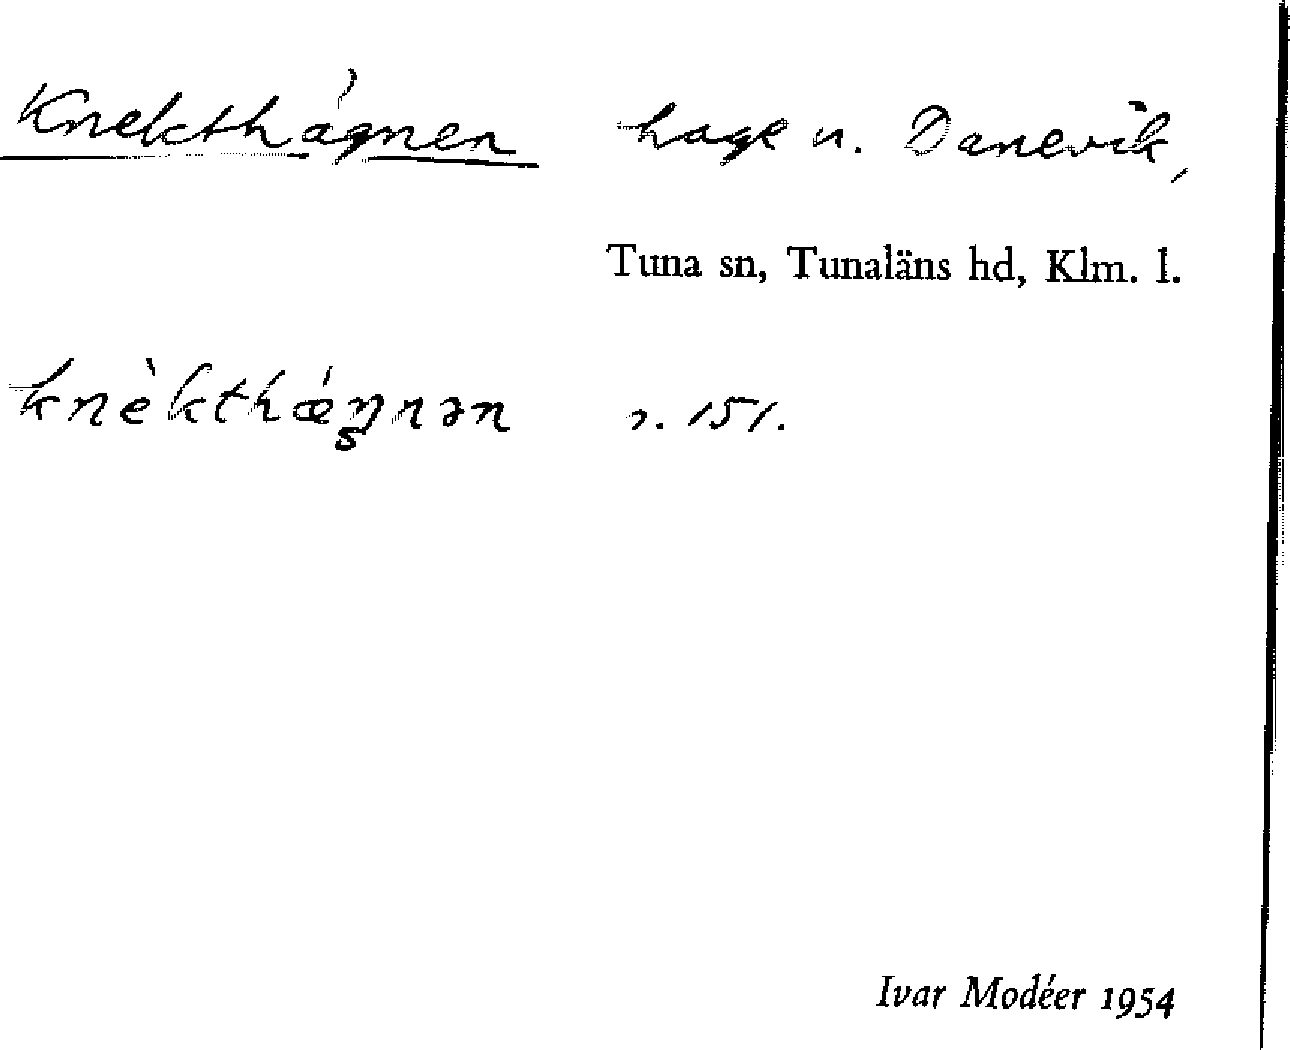 Knekthágnen hage u. Danevik,
Tuna sn, Tunaläns hd, Klm. l.
s. 151.
Ivar Modéer 1954